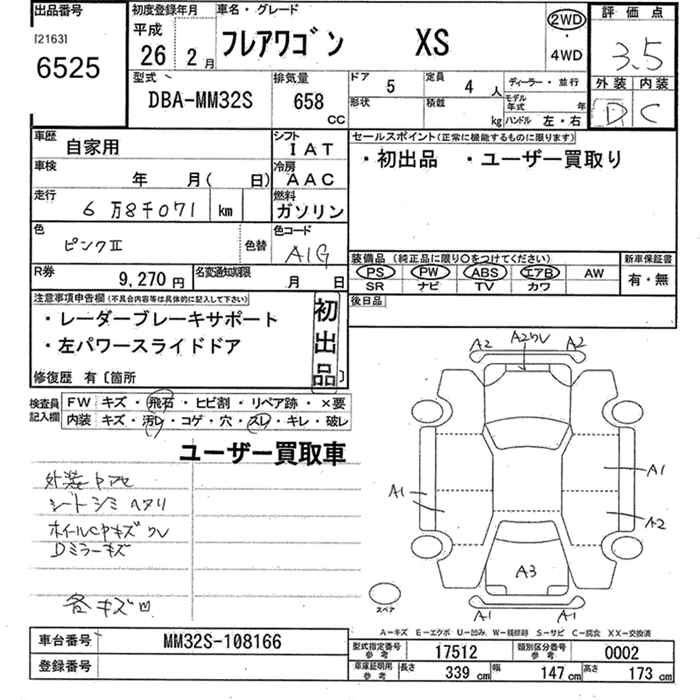 出品番号
[2163]
6525
初度登録年月
平成
26年 2月
車名・グレード
フレアワゴン XS
2WD
・
4WD
評価点
3.5
外装 内装
D C
型式
DBA-MM32S
排気量
658
CC
ドア
5
定員
4人
形状
積載
kg
ディーラー・並行
モデル年式 年
ハンドル 左・右
車歴
自家用
シフト
IAT
車検
年 月( 日)
冷房
AAC
走行
6万8千071 km
燃料
ガソリン
色
ピンクII
色替
色コード
A1G
R券
9,270円
名変通知期限
月 日
セールスポイント(正常に機能するものに限ります)
・初出品 ・ユーザー買取り
装備品(純正品に限り○をつけてください)
PS PW ABS エアB AW
SR ナビ TV カワ
新車保証書
有・無
後日品
注意事項申告欄(不具合内容等は具体的に記入して下さい)
・レーダーブレーキサポート
・左パワースライドドア
初出品
修復歴 有〔箇所
検査員記入欄
FW キズ・飛石・ヒビ割・リペア跡・×要
内装 キズ・汚レ・コゲ・穴・スレ・キレ・破レ
ユーザー買取車
シートシミ ヘタリ
Dミラーキズ
各キズ凹
A2 A2 A2
A1
A1
A2
A3
A1 A1
スペア
A―キズ E―エクボ U―凹み W―補修跡 S―サビ C―腐食 XX―交換済
車台番号
MM32S-108166
登録番号
型式指定番号
参考
17512
類別区分番号
参考
0002
車庫証明用
参考
長さ 339 cm
幅 147 cm
高さ 173 cm